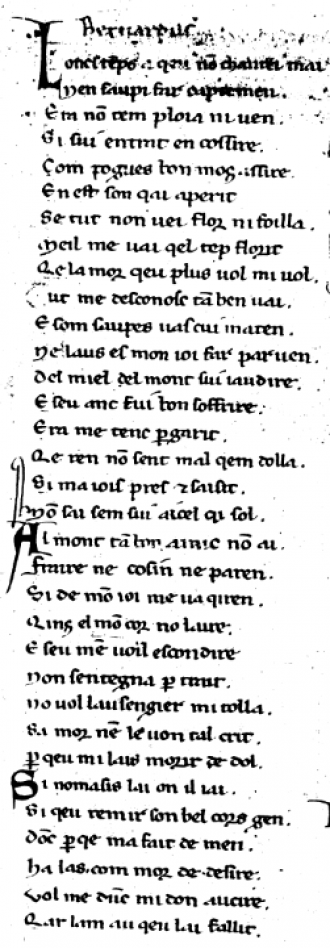 Bernardus
Lonc tẽps a qeu nõ chantei mai
Ni en saupi far captemen.
Era nõ tem ploia ni ven.
Si sui entrat en cossire.
Com pogues bon mog assire
En est son qai aperit
Se tut non vei flor ni foilla.
Meil me vai qel tẽp florit
Qe lamor qeu plus vol mi vol.
Tut me desconosc tã ben vai.
E som saupes vas cui maten.
Ne laus es mon ioi far paruen.
Del miel del mont sui iaudire.
E seu anc fui bon soffrire.
Era me tenc p garit.
Qe ren nõ sent mal qem dolla.
Si ma iois pres ⁊ saisit.
Nõ sai sem sui aicel qi sol.
Al mont tã bon amic nõ ai.
Fraire ne cosin ne paren.
Si de mõ ioi me va qiren.
Qinz el mõ cor no laire.
E seu mẽ voil escondire
Non sentegna p
No vol lausengier mi tolla.
Sa mor nẽ leuon tal crit.
p qeu mi lais morir de dol.
Si nomasis lai on il iai.
Si qeu remir son bel cors gen.
Dõc p qe ma fait de men.
Ha las. com mor de desire.
Vol me dũc mi don aucire.
Qar lam au qeu lai fallit.